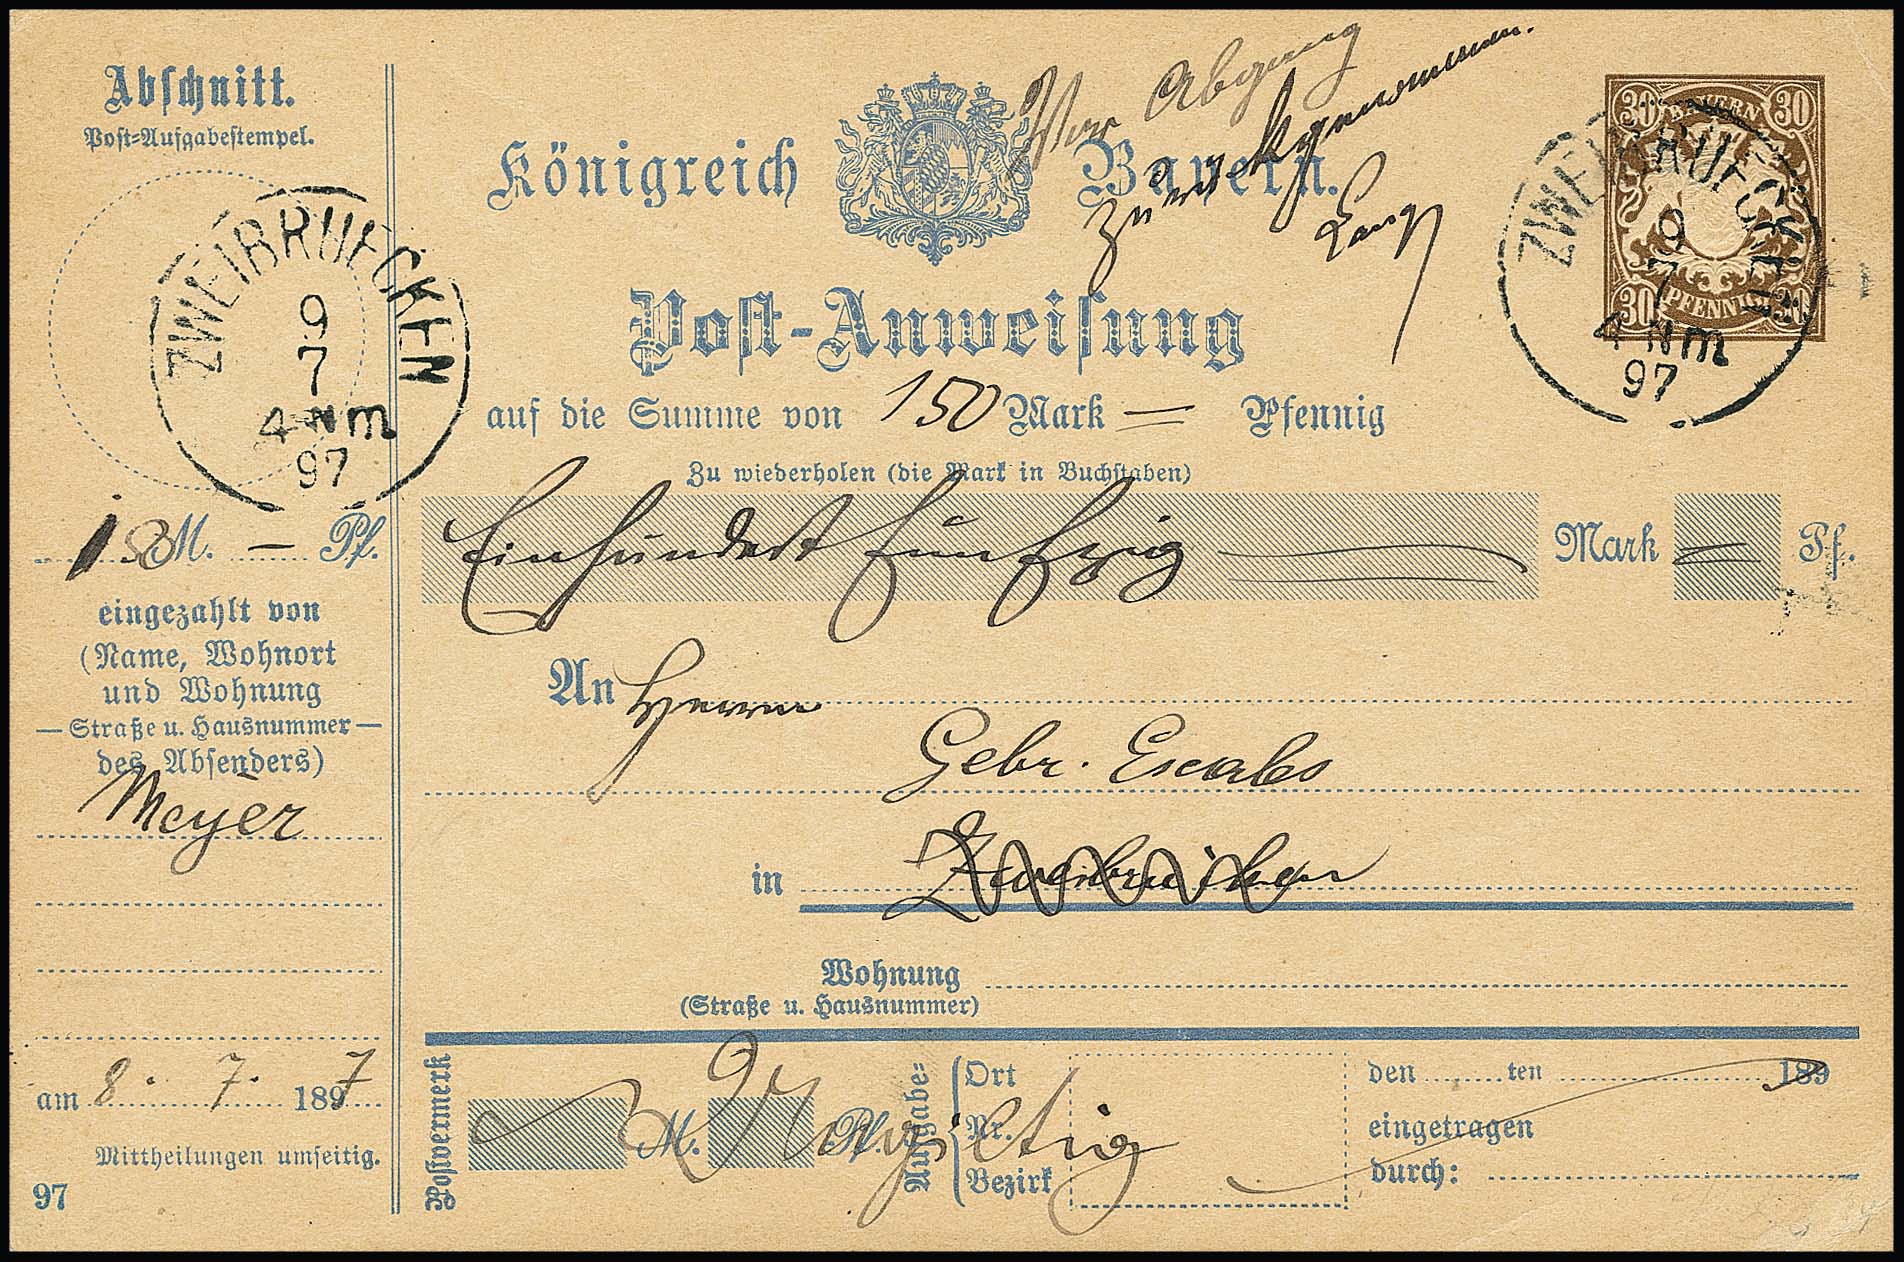 Abschnitt.
Post-Aufgabestempel.
ZWEIBRUECKEN
9
7
4 NM
97
150 M. — Pf.
eingezahlt von
(Name, Wohnort
und Wohnung
— Straße u. Hausnummer —
des Absenders)
Meyer
am 8. 7. 1897
Mittheilungen umseitig.
97
Vor Abgang
zurückgenommen.
Lang
Königreich Bayern.
Post-Anweisung
auf die Summe von 150 Mark = Pfennig
Zu wiederholen (die Mark in Buchstaben)
Einhundert fünfzig Mark = Pf.
An Herren
Gebr. Escales
in Zweibrücken
Wohnung
(Straße u. Hausnummer)
Postvermerk
M. Pf.
Ungiltig
Aufgabe-
Ort
Nr.
Bezirk
den ten 189
eingetragen
durch:
30 BAYERN 30
30 PFENNIG 30
ZWEIBRUECKEN
9
7
4 NM
97